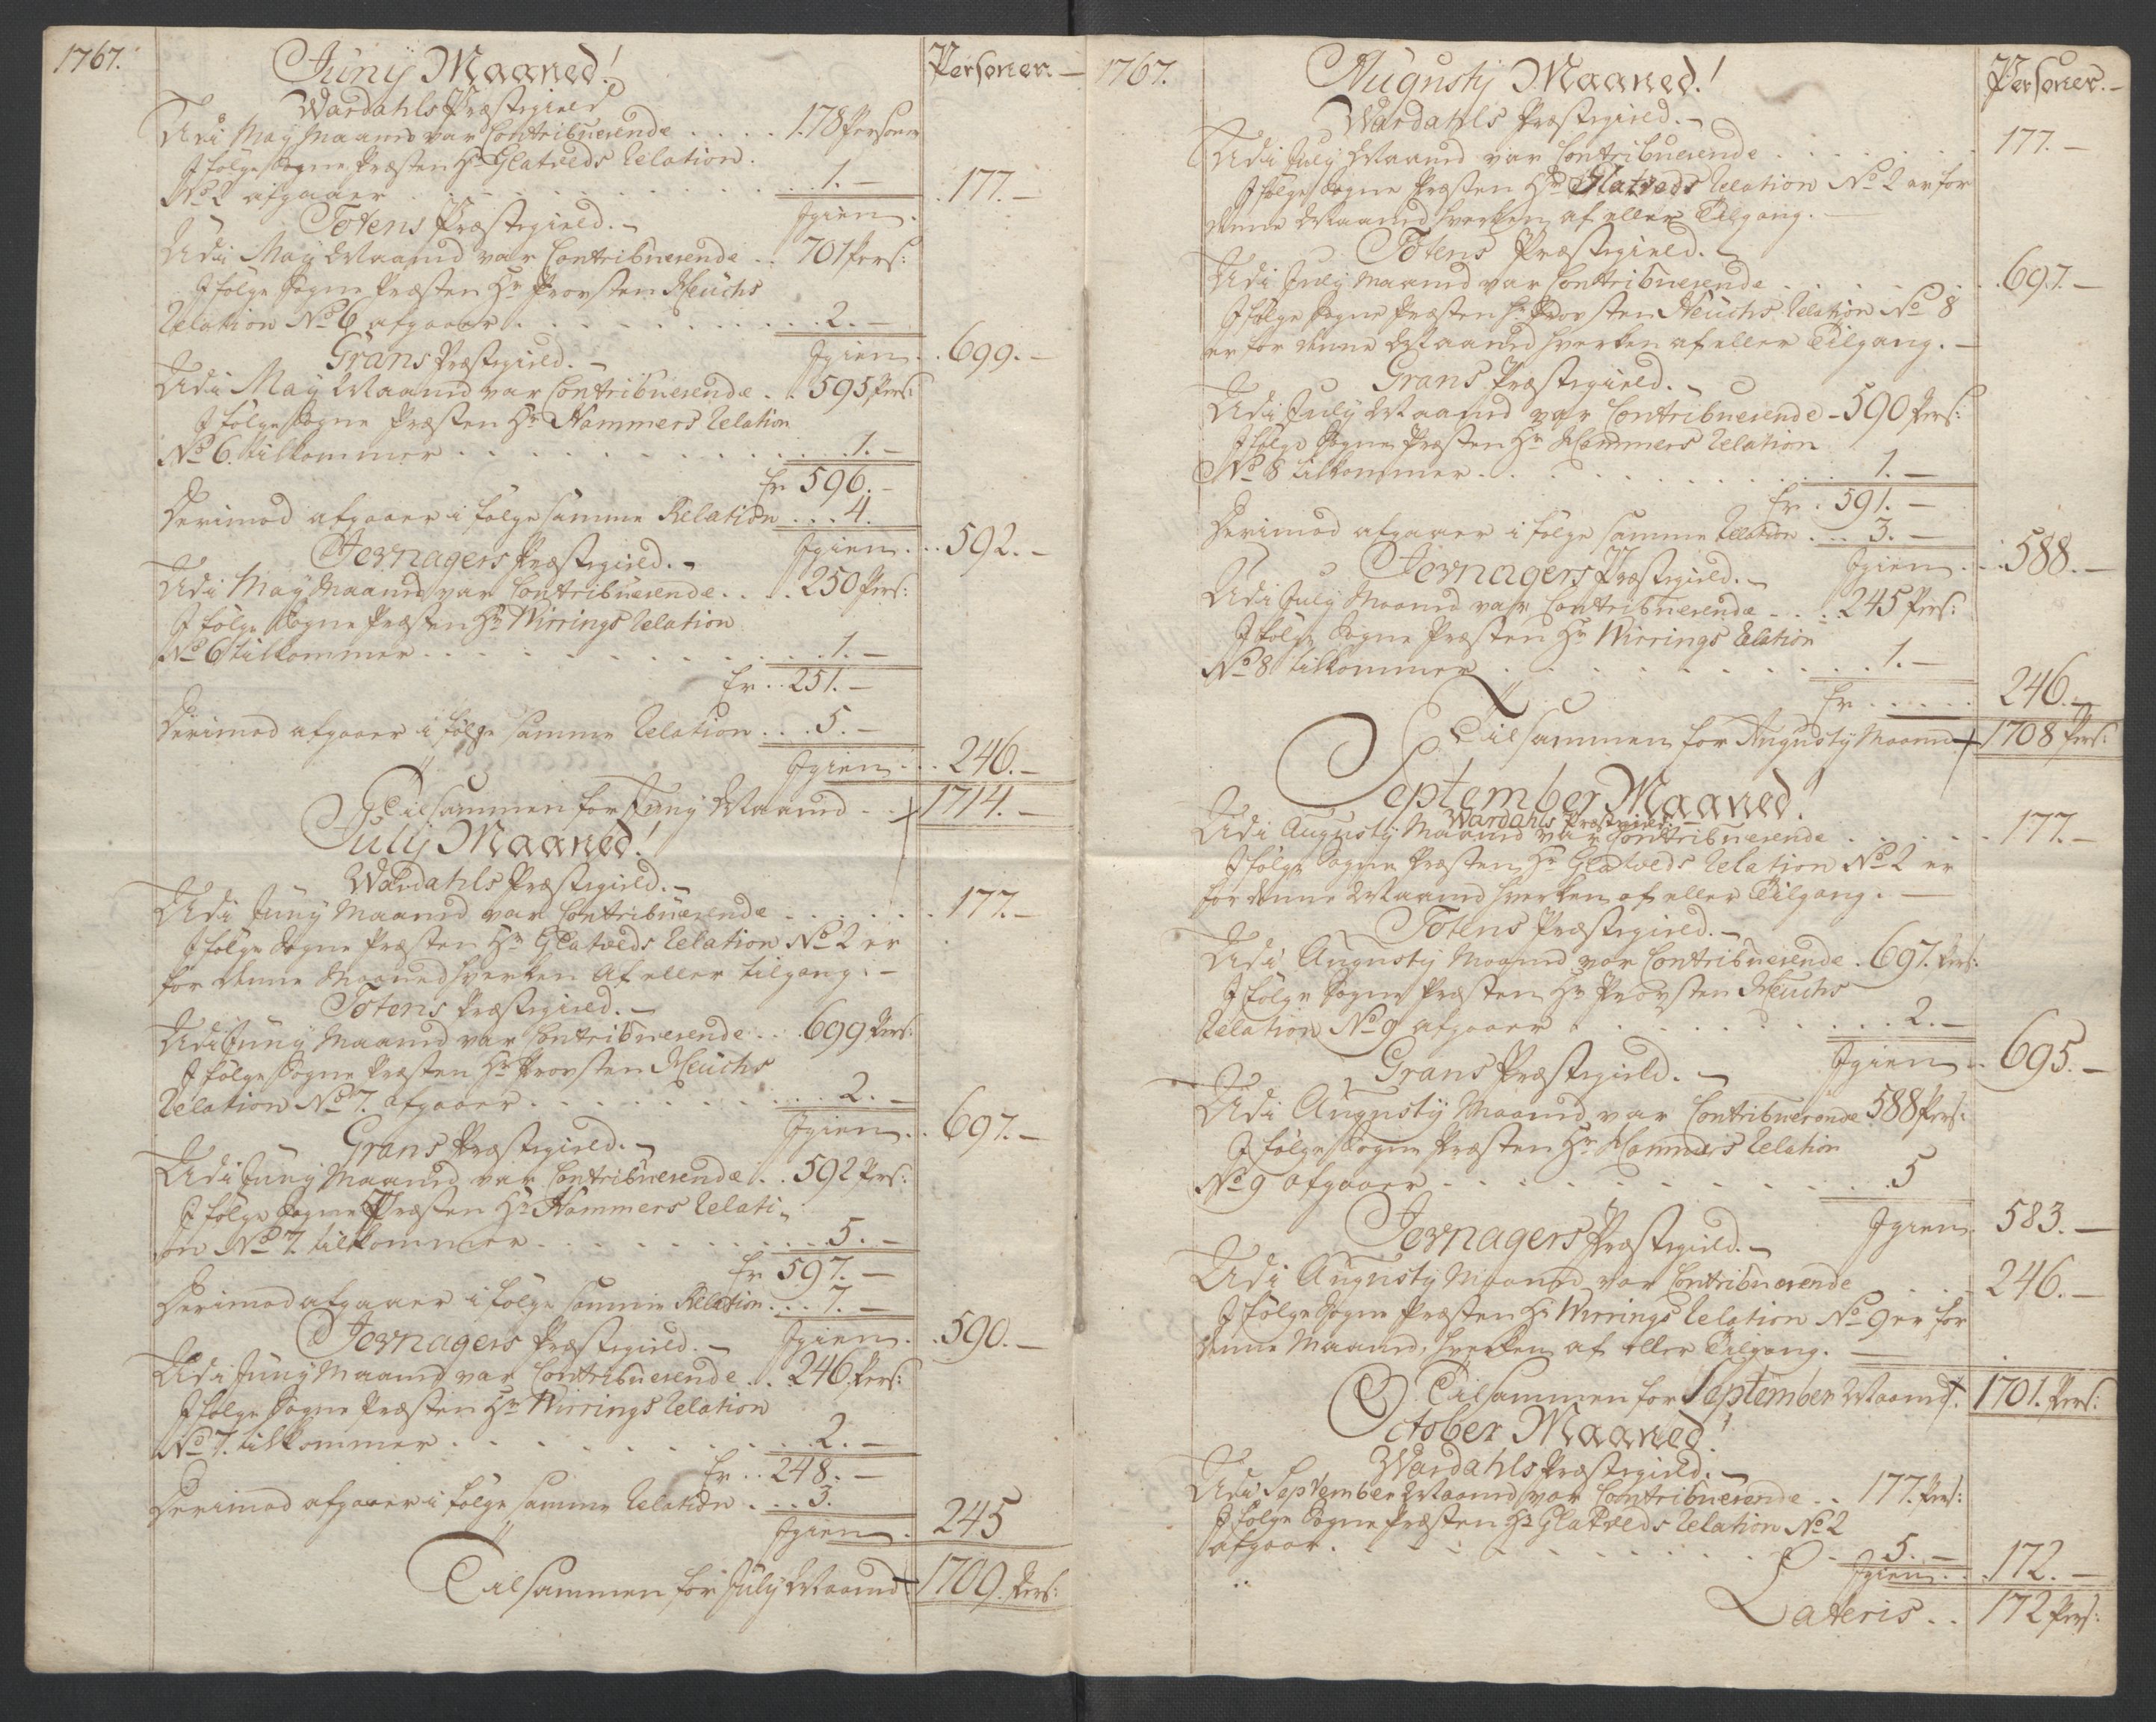 1767.
Juny Maaned!
Personer.
Wardahls Præstegield
Udi May Maaned var Contribuerende .... 178 Personer
I følge Sogne Præsten Hr Glatveds Relation.
No 2 afgaaer ... 1.— 177.—
Totens Præstegield.— Igien.
Udi May Maaned var Contribuerende .. 701 Pers:
I følge Sogne Præsten Hr Provsten Heuchs
Relation No 6 afgaaer ... 2.—
Grans Præstegield.— Igien .. 699.—
Udi May Maaned var Contribuerende .. 595 Pers:
I følge Sogne Præsten Hr Hammers Relation
No 6. tilkommer ... 1.—
Er 596.—
Derimod afgaaer i følge samme Relation ... 4.
Jevnagers Præstegield.— Igien ... 592.—
Udi May Maaned var Contribuerende .... 250 Pers:
I følge Sogne Præsten Hr Wirrings Relation
No 6 tilkommer ... 1.—
Er .. 251.—
Derimod afgaaer i følge samme Relation ... 5.—
Igien ... 246.—
Tilsammen for Juny Maaned .. 1714.—
July Maaned!
Wardahls Præstegield.—
Udi Juny Maaned var Contribuerende ... 177.—
I følge Sogne Præsten Hr Glatveds Relation No 2 er
for denne Maaned hverken Af eller tilgang.—
Totens Præstegield.—
Udi Juny Maaned var Contribuerende ... 699 Pers:
I følge Sogne Præsten Hr Provsten Heuchs
Relation No 7. afgaaer ... 2.—
Grans Præstegield.— Igien .. 697.—
Udi Juny Maaned var Contribuerende .. 592 Pers:
I følge Sogne Præsten Hr Hammers Relati-
on No 7. tilkommer ... 5.—
Er 597.—
Derimod afgaaer i følge samme Relation ... 7.—
Jevnagers Præstegield.— Igien . 590.—
Udi Juny Maaned var Contribuerende ... 246 Pers:
I følge Sogne Præsten Hr Wirrings Relation
No 7. tilkommer ... 2.—
Er .. 248.—
Derimod afgaaer i følge samme Relation ... 3.
Igien . 245
Tilsammen for July Maaned 1709. Pers:
1767.
Augusty Maaned!
Personer.—
Wardahls Præstegield.—
Udi July Maaned var Contribuerende ... 177.—
I følge Sogne Præsten Hr Glatveds Relation No 2 er for
denne Maaned hverken af eller Tilgang.—
Totens Præstegield.—
Udi July Maaned var Contribuerende ... 697.—
I følge Sogne Præsten Hr Provsten Heuchs Relation No 8
er for denne Maaned hverken af eller Tilgang.—
Grans Præstegield.—
Udi July Maaned var Contribuerende - 590 Pers:
I følge Sogne Præsten Hr Hammers Relation
No 8 tilkommer ... 1.—
Er . 591.—
Derimod afgaaer i følge samme Relation ... 3.—
Jevnagers Præstegield.— Igien ... 588.—
Udi July Maaned var Contribuerende ... 245 Pers:
I følge Sogne Præsten Hr Wirrings Relation
No 8 tilkommer ... 1.—
Er ..... 246.—
Tilsammen for Augusty Maaned 1708 Pers:
September Maaned!
Wardahls Præstegield.—
Udi Augusty Maaned var Contribuerende ... 177.—
I følge Sogne Præsten Hr Glatveds Relation No 2 er
for denne Maaned hverken af eller Tilgang.—
Totens Præstegield.—
Udi Augusty Maaned var Contribuerende . 697. Pers:
I følge Sogne Præsten Hr Provsten Heuchs
Relation No 9 afgaaer ... 2.—
Grans Præstegield.— Igien .. 695.—
Udi Augusty Maaned var Contribuerende 588 Pers:
I følge Sogne Præsten Hr Hammers Relation
No 9 afgaaer ... 5
Jevnagers Præstegield.— Igien. 583.—
Udi Augusty Maaned var Contribuerende ... 246.—
I følge Sogne Præsten Hr Wirrings Relation No 9 er for
denne Maaned, hverken af eller Tilgang.—
Tilsammen for September Maaned. 1701. Pers:
October Maaned!
Wardahls Præstegield.—
Udi September Maaned var Contribuerende .. 177. Pers:
I følge Sogne Præsten Hr Glatveds Relation No 2
afgaar ... 5.—
Igien .. 172.—
Lateris .. 172 Pers: